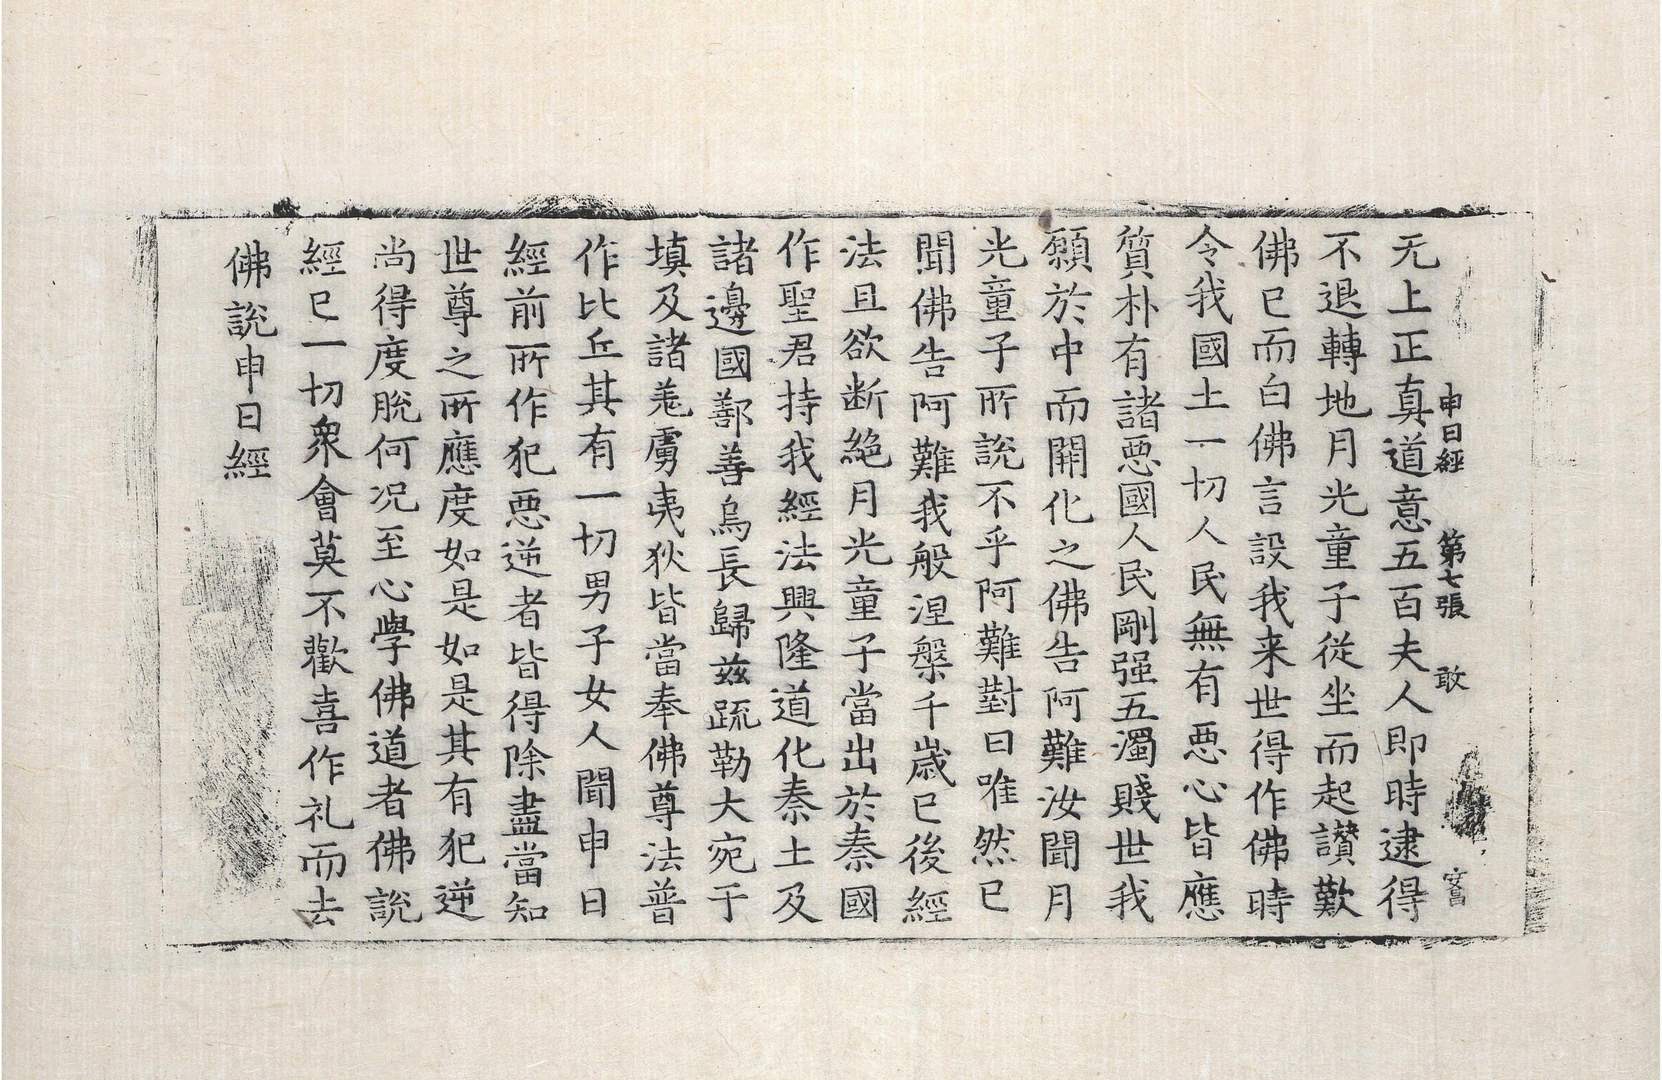 申日經 第七張 敢
无上正真道意五百夫人即時逮得
不退轉地月光童子從坐而起讃歎
佛已而白佛言設我来世得作佛時
令我國土一切人民無有惡心皆應
質朴有諸惡國人民剛强五濁賤世我
願於中而開化之佛告阿難汝聞月
光童子所說不乎阿難對曰唯然已
聞佛告阿難我般涅槃千歲已後經
法且欲断絶月光童子當出於秦國
作聖君持我經法興隆道化秦土及
諸邊國鄯善烏長歸茲疏勒大宛于
填及諸羌虜夷狄皆當奉佛尊法普
作比丘其有一切男子女人聞申日
經前所作犯惡逆者皆得除盡當知
世尊之所應度如是如是其有犯逆
尚得度脫何况至心學佛道者佛說
經已一切衆會莫不歡喜作礼而去
佛說申日經